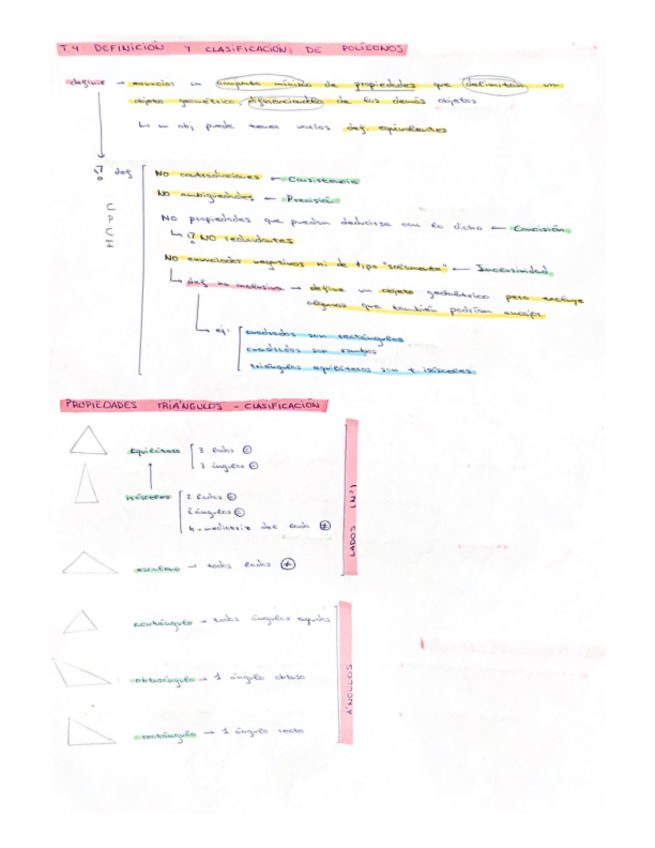 T.4 DEFINICIÓN Y CLASIFICACIÓN DE POLÍGONOS
definir → enunciar un conjunto mínimo de propiedades que delimitan un
objeto geométrico, diferenciándolo de los demás objetos
↳ un obj. puede tener varias def. equivalentes
def
NO contradicciones ← Consistencia
NO ambigüedades ← Precisión
NO propiedades que puedan deducirse con lo dicho ← Concisión
↳ NO redundantes
NO enunciados negativos ni de tipo "solamente" ← Inclusividad
↳ def no inclusiva → define un objeto geométrico pero excluye
algunos que también podrían encajar
↳ ej:
cuadrados son rectángulos
cuadrados son rombos
triángulos equiláteros son t. isósceles
C
P
C
I
PROPIEDADES TRIÁNGULOS - CLASIFICACIÓN
equilátero
3 lados =
3 ángulos =
isósceles
2 lados =
2 ángulos =
mediatriz del lado ≠
escaleno → todos lados ≠
LADOS (Nº)
acutángulo → todos ángulos agudos
obtusángulo → 1 ángulo obtuso
rectángulo → 1 ángulo recto
ÁNGULOS